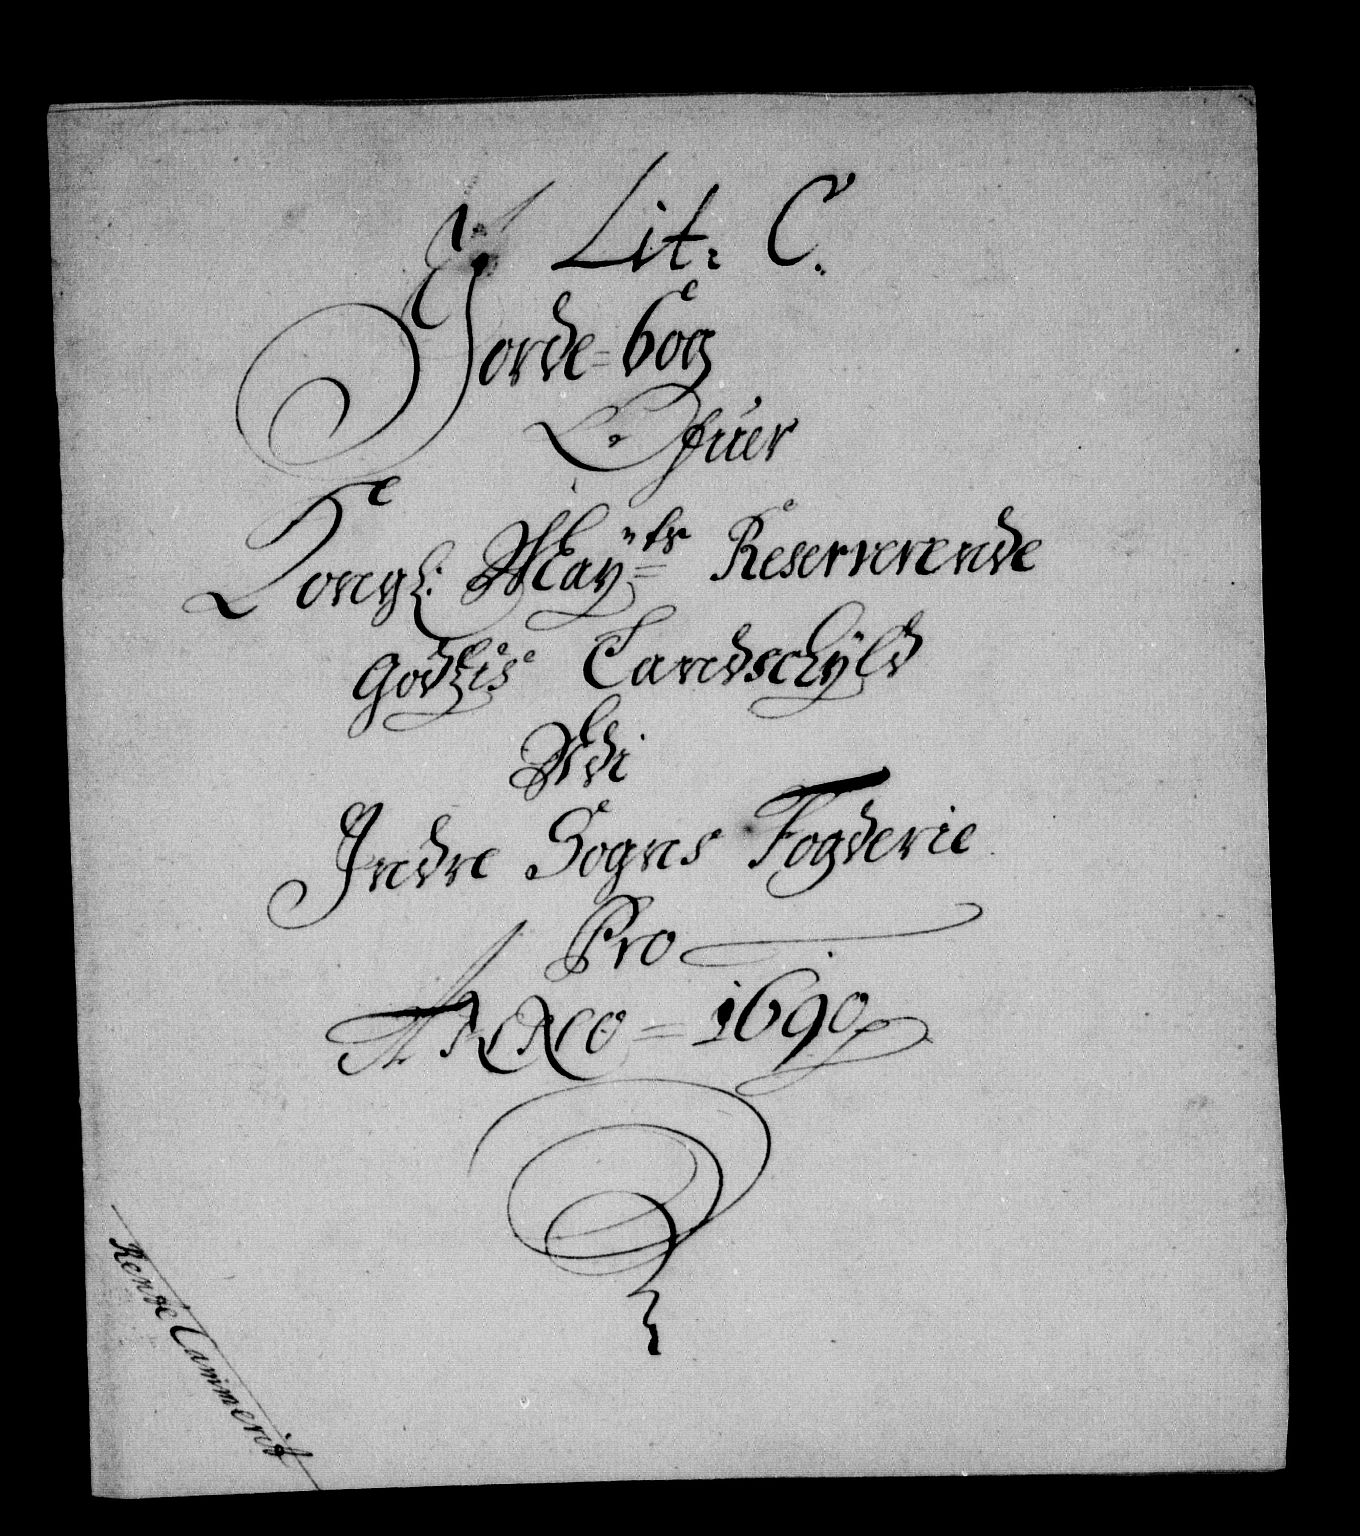 Lit: C.
Jorde=bog
Ofuer
Kongl: May:ts Reserverende
Godtzis Landschÿld
Udi
Indre Sogns Fogderie
Pro
ANNO = 1690
Rente Cammerit